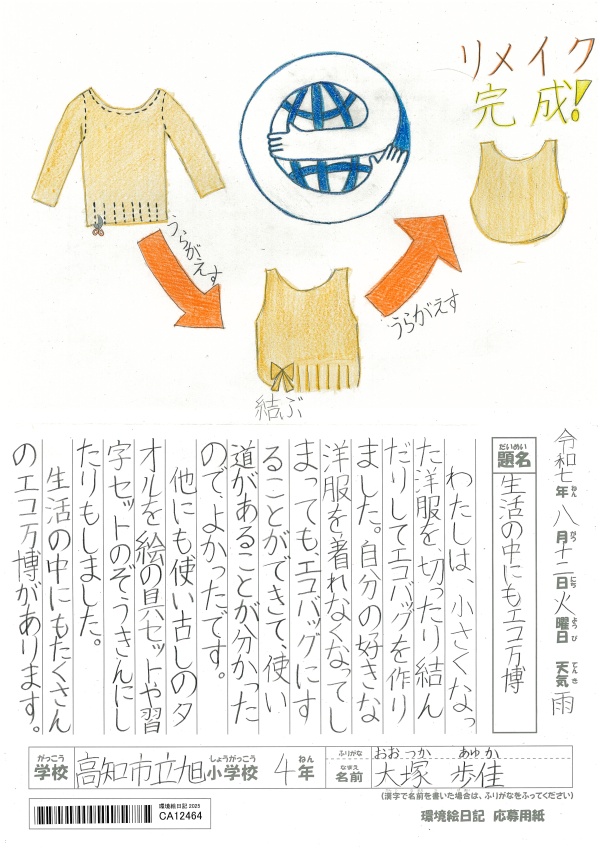 リメイク
完成!
うらがえす
うらがえす
結ぶ
令和七年八月十二日火曜日 天気雨
ねん がつ にち ようび てんき
だいめい
題名
生活の中にもエコ万博
わたしは、小さくなっ
た洋服を、切ったり結ん
だりしてエコバッグを作り
ました。自分の好きな
洋服を着れなくなってし
まっても、エコバッグにす
ることができて、使い
道があることが分かった
ので、よかったです。
他にも使い古しのタ
オルを絵の具セットや習
字セットのぞうきんにし
たりもしました。
生活の中にもたくさん
のエコ万博があります。
がっこう しょうがっこう ねん ふりがな おおつか あゆか
学校 高知市立旭小学校 4年 なまえ 名前 大塚 歩佳
(漢字で名前を書いた場合は、ふりがなをふってください)
環境絵日記 2025
CA12464
環境絵日記 応募用紙